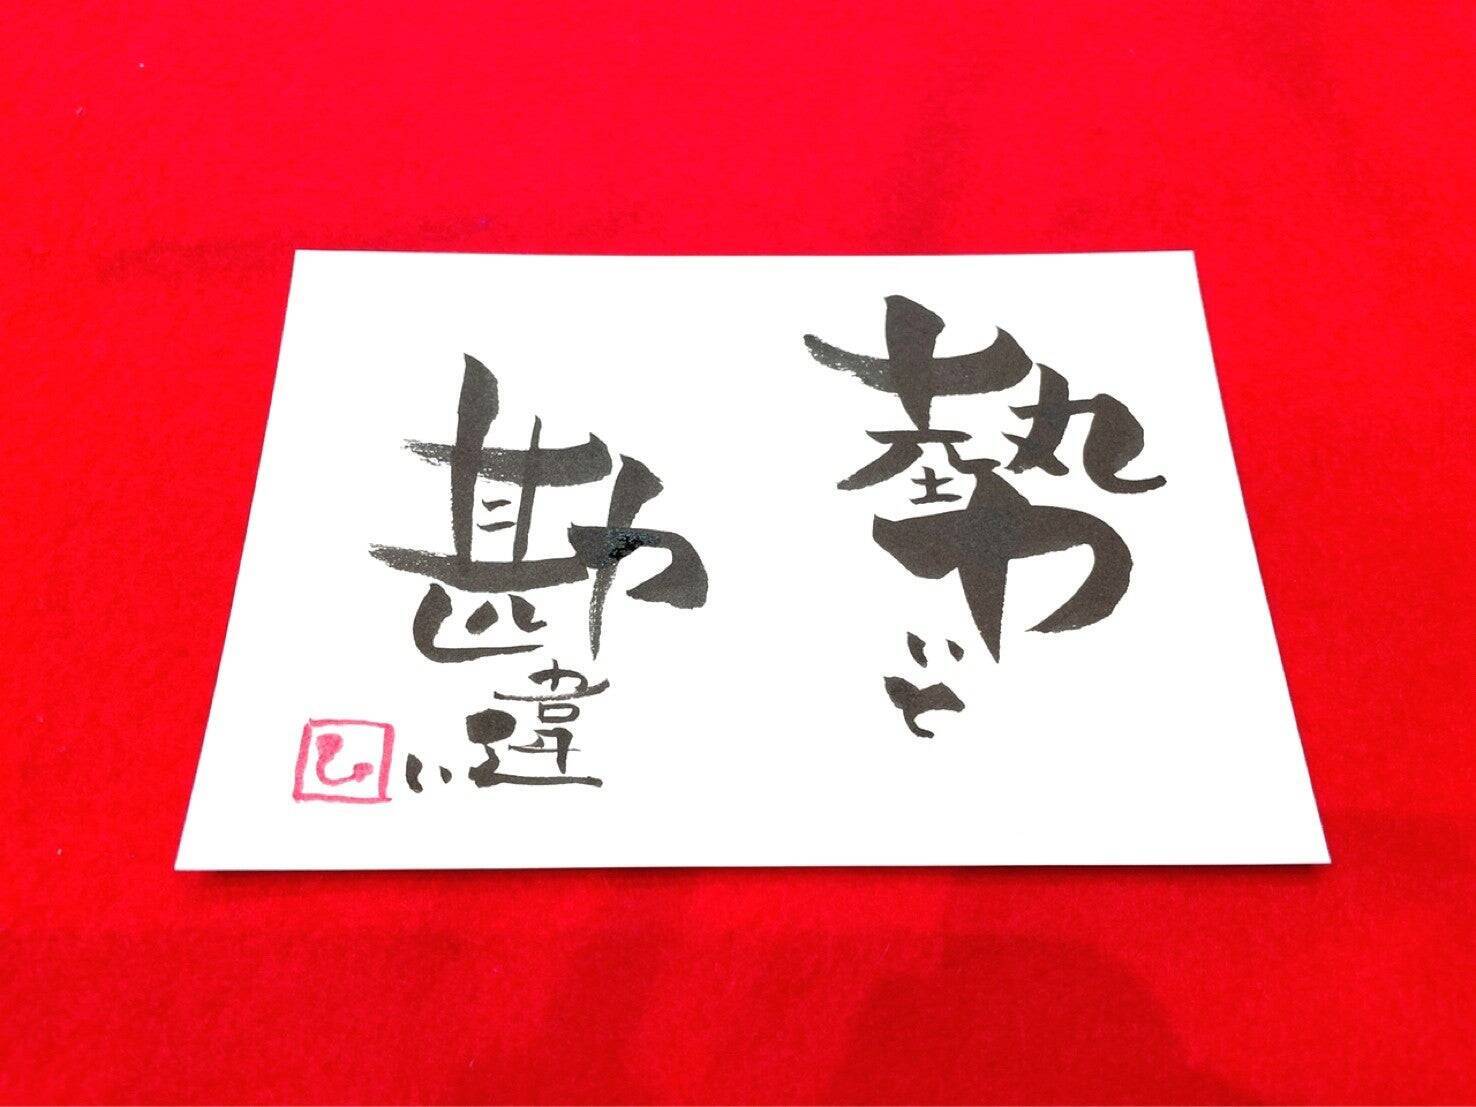 勢いと
勘違い
ひ